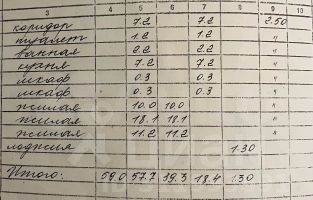 3 4 5 6 7 8 9 10
коридор 7.2 7.2 2.50
туалет 1.2 1.2 "
ванная 2.2 2.2 "
кухня 7.2 7.2 "
шкаф 0.3 0.3 "
шкаф 0.3 0.3 "
жилая 10.0 10.0 "
жилая 18.1 18.1 "
жилая 11.2 11.2 "
лоджия 1.30
Итого: 59.0 57.7 39.3 18.4 1.30